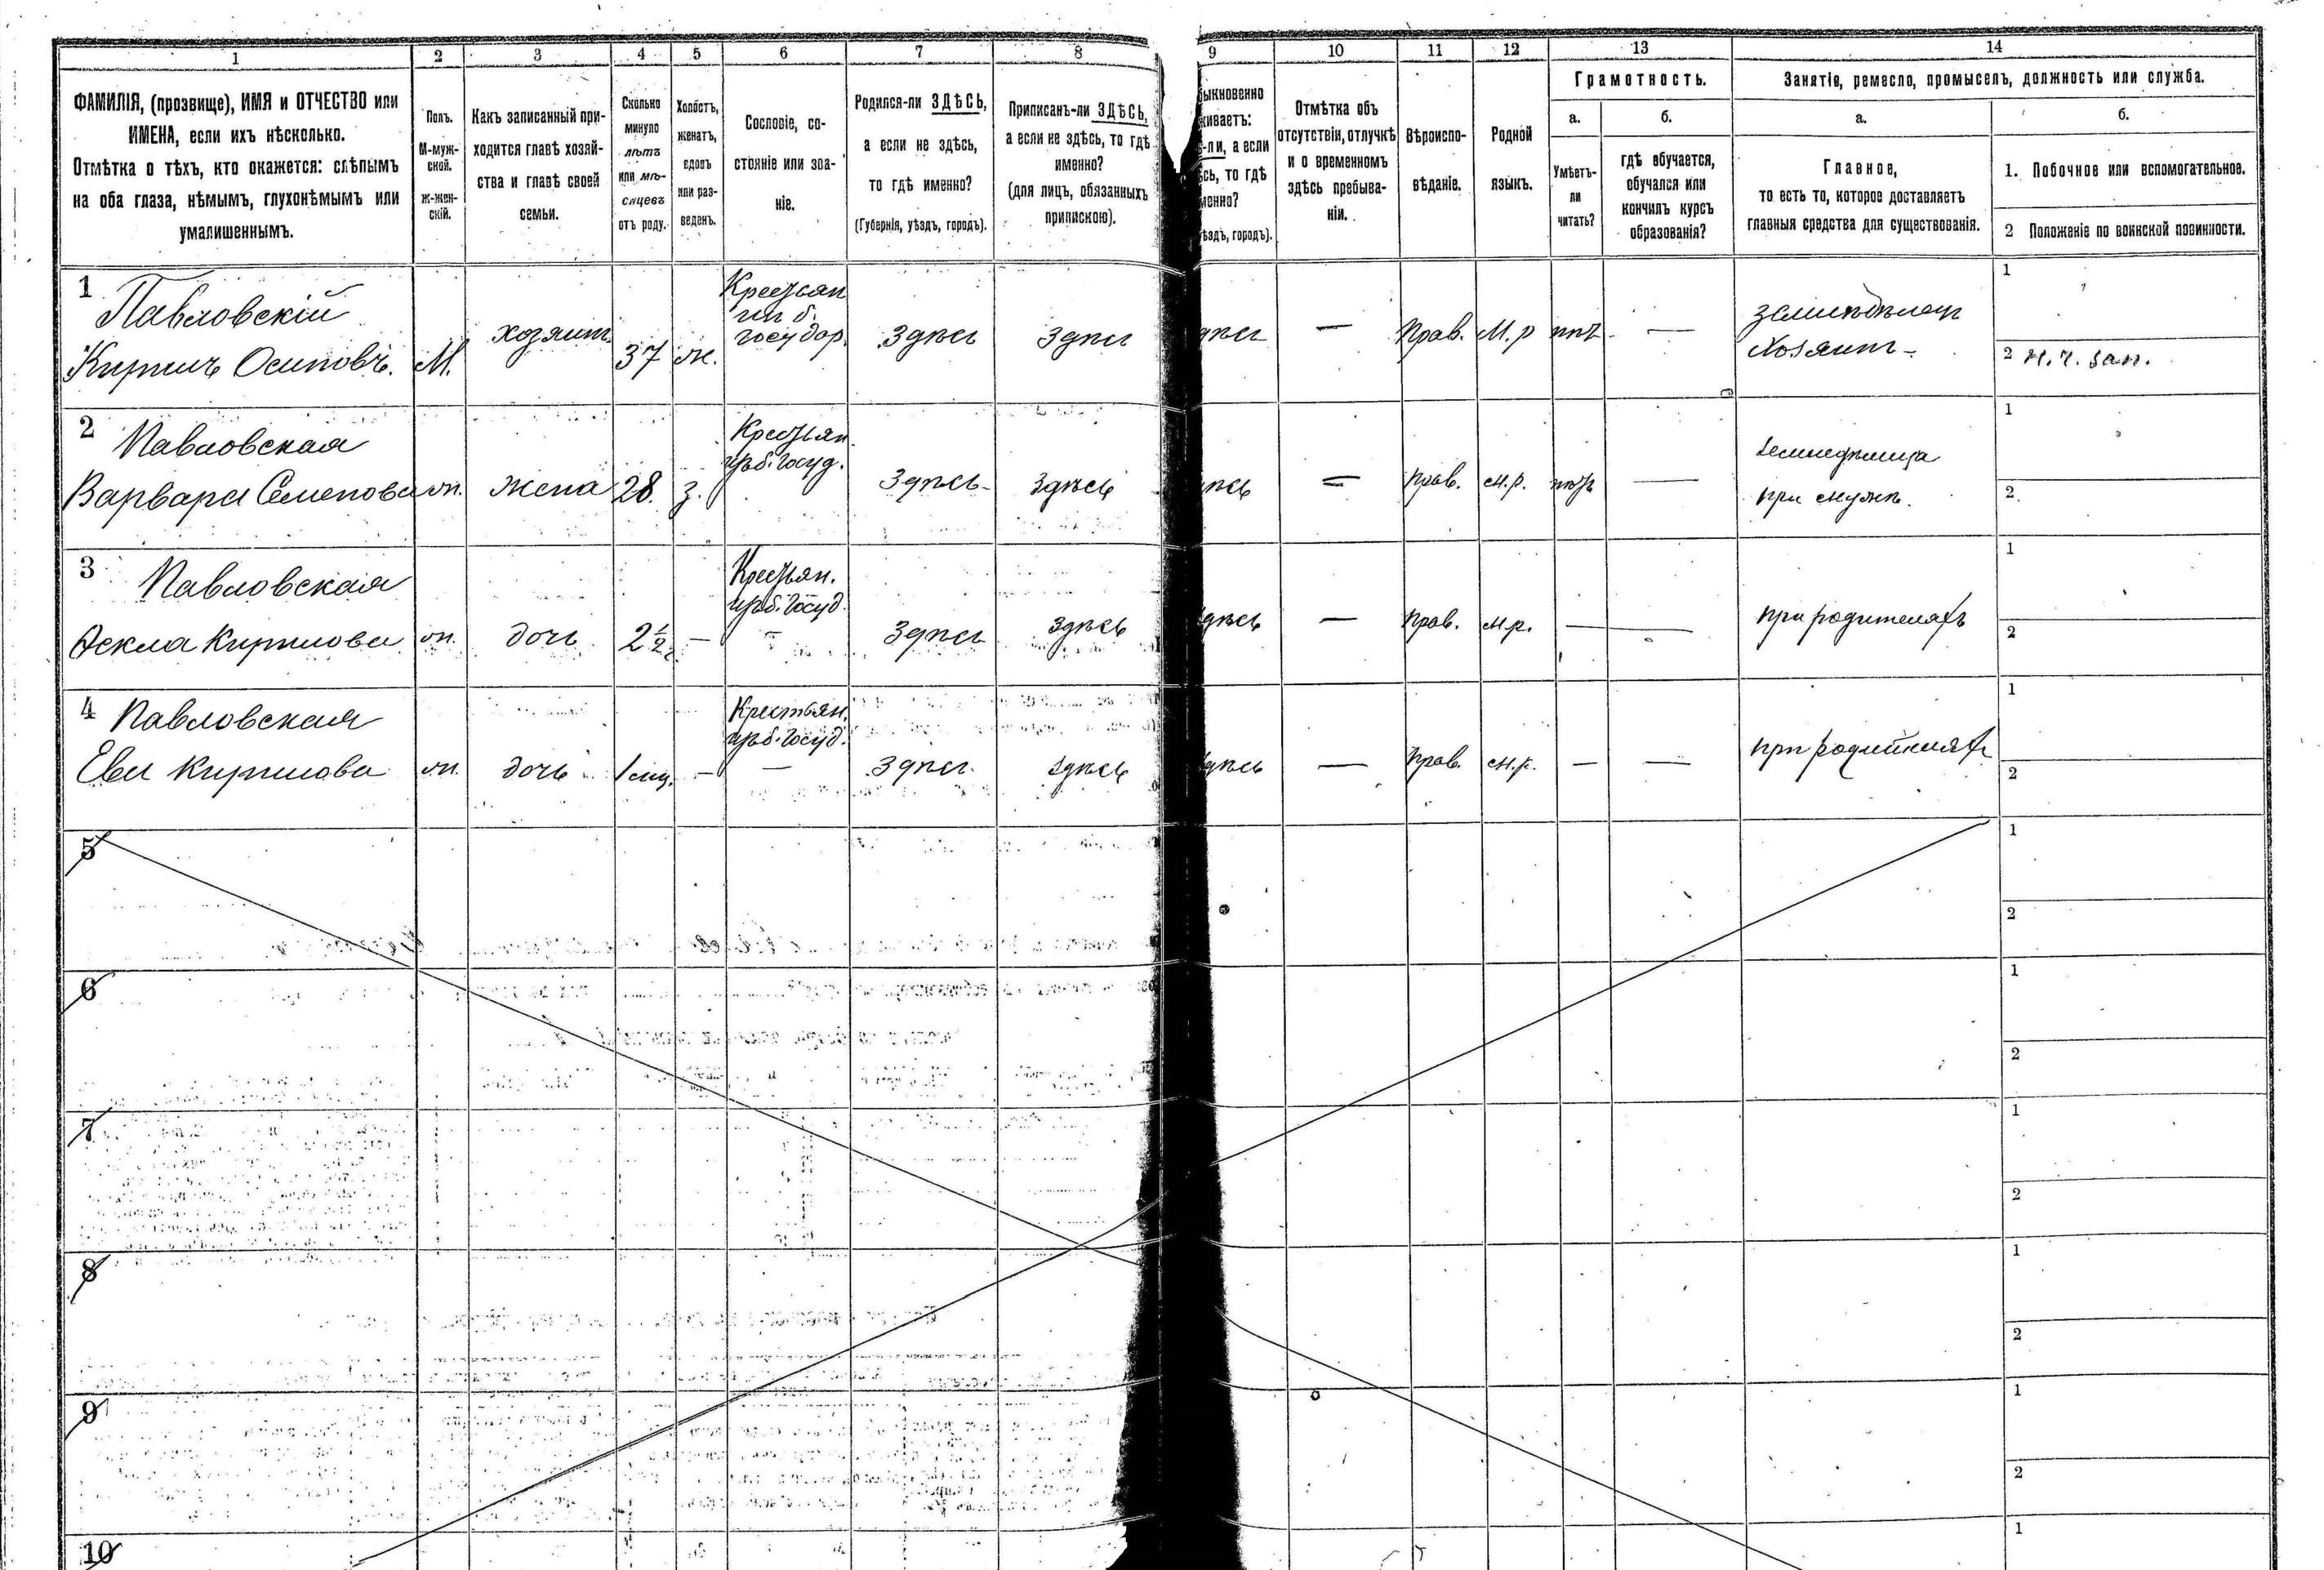 1 2 3 4 5 6 7 8 9 10 11 12 13 14
ФАМИЛІЯ, (прозвище), ИМЯ и ОТЧЕСТВО или
ИМЕНА, если ихъ нѣсколько.
Отмѣтка о тѣхъ, кто окажется: слѣпымъ
на оба глаза, нѣмымъ, глухонѣмымъ или
умалишеннымъ.
Полъ.
М-муж-
ской.
Ж-жен-
скій.
Какъ записанный при-
ходится главѣ хозяй-
ства и главѣ своей
семьи.
Сколько
минуло
лѣтъ
или мѣ-
сяцевъ
отъ роду.
Холостъ,
женатъ,
вдовъ
или раз-
веденъ.
Сословіе, со-
стояніе или зва-
ніе.
Родился-ли ЗДѢСЬ,
а если не здѣсь,
то гдѣ именно?
(Губернія, уѣздъ, городъ).
Приписанъ-ли ЗДѢСЬ,
а если не здѣсь, то гдѣ
именно?
(для лицъ, обязанныхъ
припискою).
ыкновенно
живаетъ:
-ли, а если
сь, то гдѣ
менно?
ѣздъ, городъ).
Отмѣтка объ
отсутствіи, отлучкѣ
и о временномъ
здѣсь пребыва-
ніи.
Вѣроиспо-
вѣданіе.
Родной
языкъ.
Грамотность.
а.
Умѣетъ-
ли
читать?
б.
гдѣ обучается,
обучался или
кончилъ курсъ
образованія?
Занятіе, ремесло, промыселъ, должность или служба.
а.
Главное,
то есть то, которое доставляетъ
главныя средства для существованія.
б.
1. Побочное или вспомогательное.
2 Положеніе по воинской повинности.
1
Павловскій
Кирилъ Осиповъ.
М.
хозяинъ
37
ж.
Крестьян
ин б.
государ.
Здѣсь
Здѣсь
дѣсь
—
Прав.
М.р
нѣтъ
—
Земледѣлец
Хозяинъ
1
2 н.ч. зап.
2
Павловская
Варвара Семенова
ж.
жена
28.
з.
Крестьян.
из б. госуд.
Здѣсь
Здѣсь
дѣсь
=
прав.
м.р.
нѣтъ
—
земледѣлица
при мужѣ.
1
2.
3
Павловская
Ѳекла Кирилова
ж.
дочь
2 1/2
—
Крестьян.
из б. госуд.
—
Здѣсь
Здѣсь
дѣсь
—
прав.
м.р.
—
—
при родителяхъ
1
2
4
Павловская
Ева Кирилова
ж.
дочь
1 мц.
—
Крестьян.
из б. госуд.
—
Здѣсь
Здѣсь
дѣсь
—
прав.
м.р.
—
—
при родителях
1
2
5
1
2
6
1
2
7
1
2
8
1
2
9
1
2
10
1